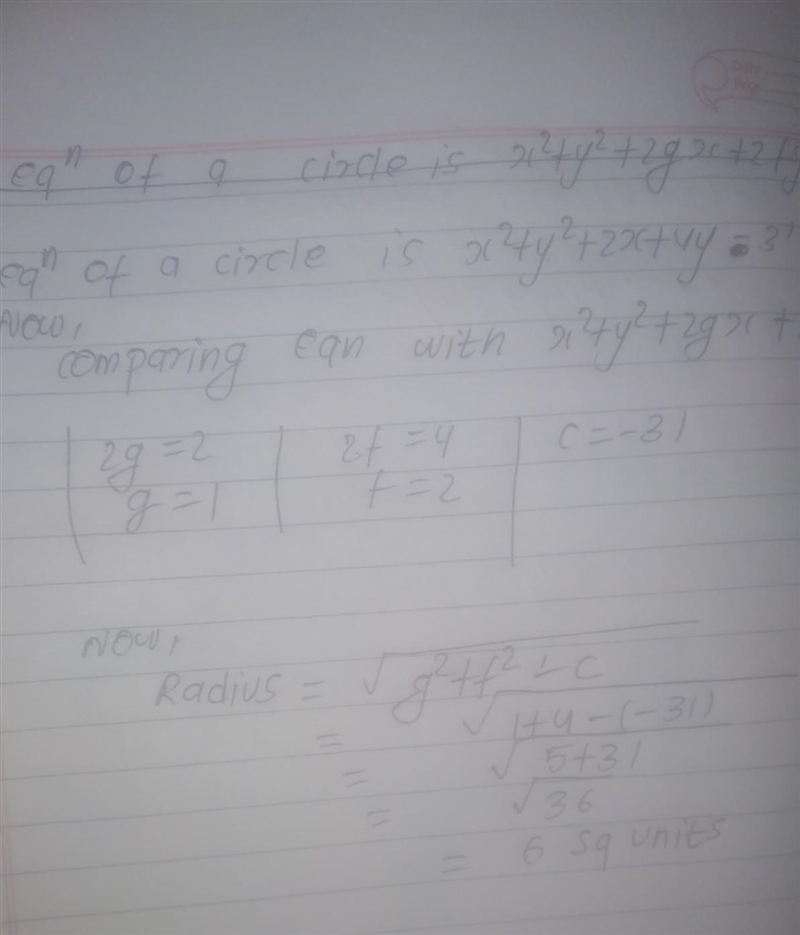 eqⁿ of a circle is x²+y²+2gx+2fy
eqⁿ of a circle is x²+y²+2x+4y = 31
Now,
comparing eqn with x²+y²+2gx+
2g = 2 2f = 4 c = -31
g = 1 f = 2
Now,
Radius = √g²+f² - c
= √1+4-(-31)
= √5+31
= √36
= 6 sq units